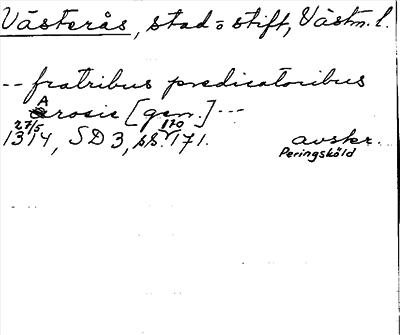 Västerås, stad o stift, Västm. l.
-- fratribus predicatoribus
Arosie [gen.] ---
27/5 1314, SD 3, ss. 170 o 171. avskr.
Peringsköld